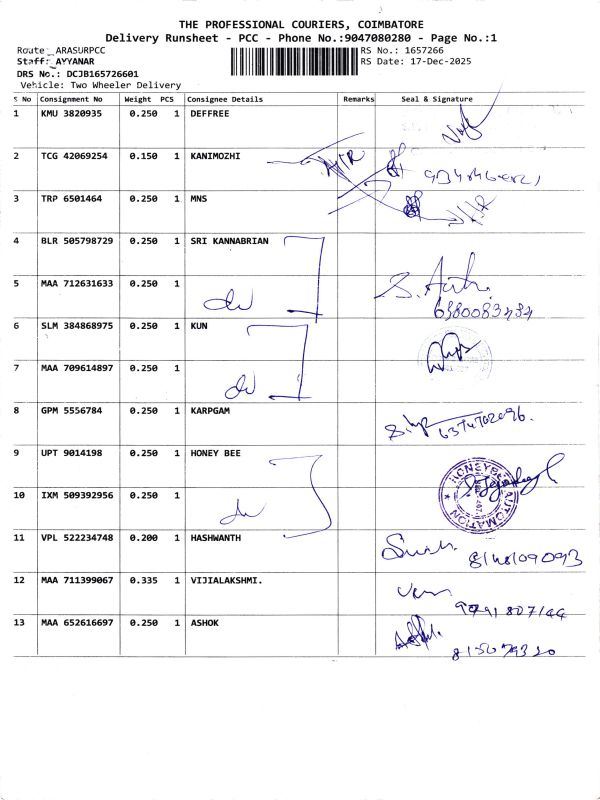 THE PROFESSIONAL COURIERS, COIMBATORE
Delivery Runsheet - PCC - Phone No.:9047080280 - Page No.:1
Route: ARASURPCC RS No.: 1657266
Staff: AYYANAR RS Date: 17-Dec-2025
DRS No.: DCJB165726601
Vehicle: Two Wheeler Delivery
S No Consignment No Weight PCS Consignee Details Remarks Seal & Signature
1 KMU 3820935 0.250 1 DEFFREE
2 TCG 42069254 0.150 1 KANIMOZHI
3 TRP 6501464 0.250 1 MNS
4 BLR 505798729 0.250 1 SRI KANNABRIAN
5 MAA 712631633 0.250 1
6 SLM 384868975 0.250 1 KUN
7 MAA 709614897 0.250 1
8 GPM 5556784 0.250 1 KARPGAM
6374702696.
9 UPT 9014198 0.250 1 HONEY BEE
HONEYBEE AUTOMATION
10 IXM 509392956 0.250 1
11 VPL 522234748 0.200 1 HASHWANTH
12 MAA 711399067 0.335 1 VIJIALAKSHMI.
13 MAA 652616697 0.250 1 ASHOK